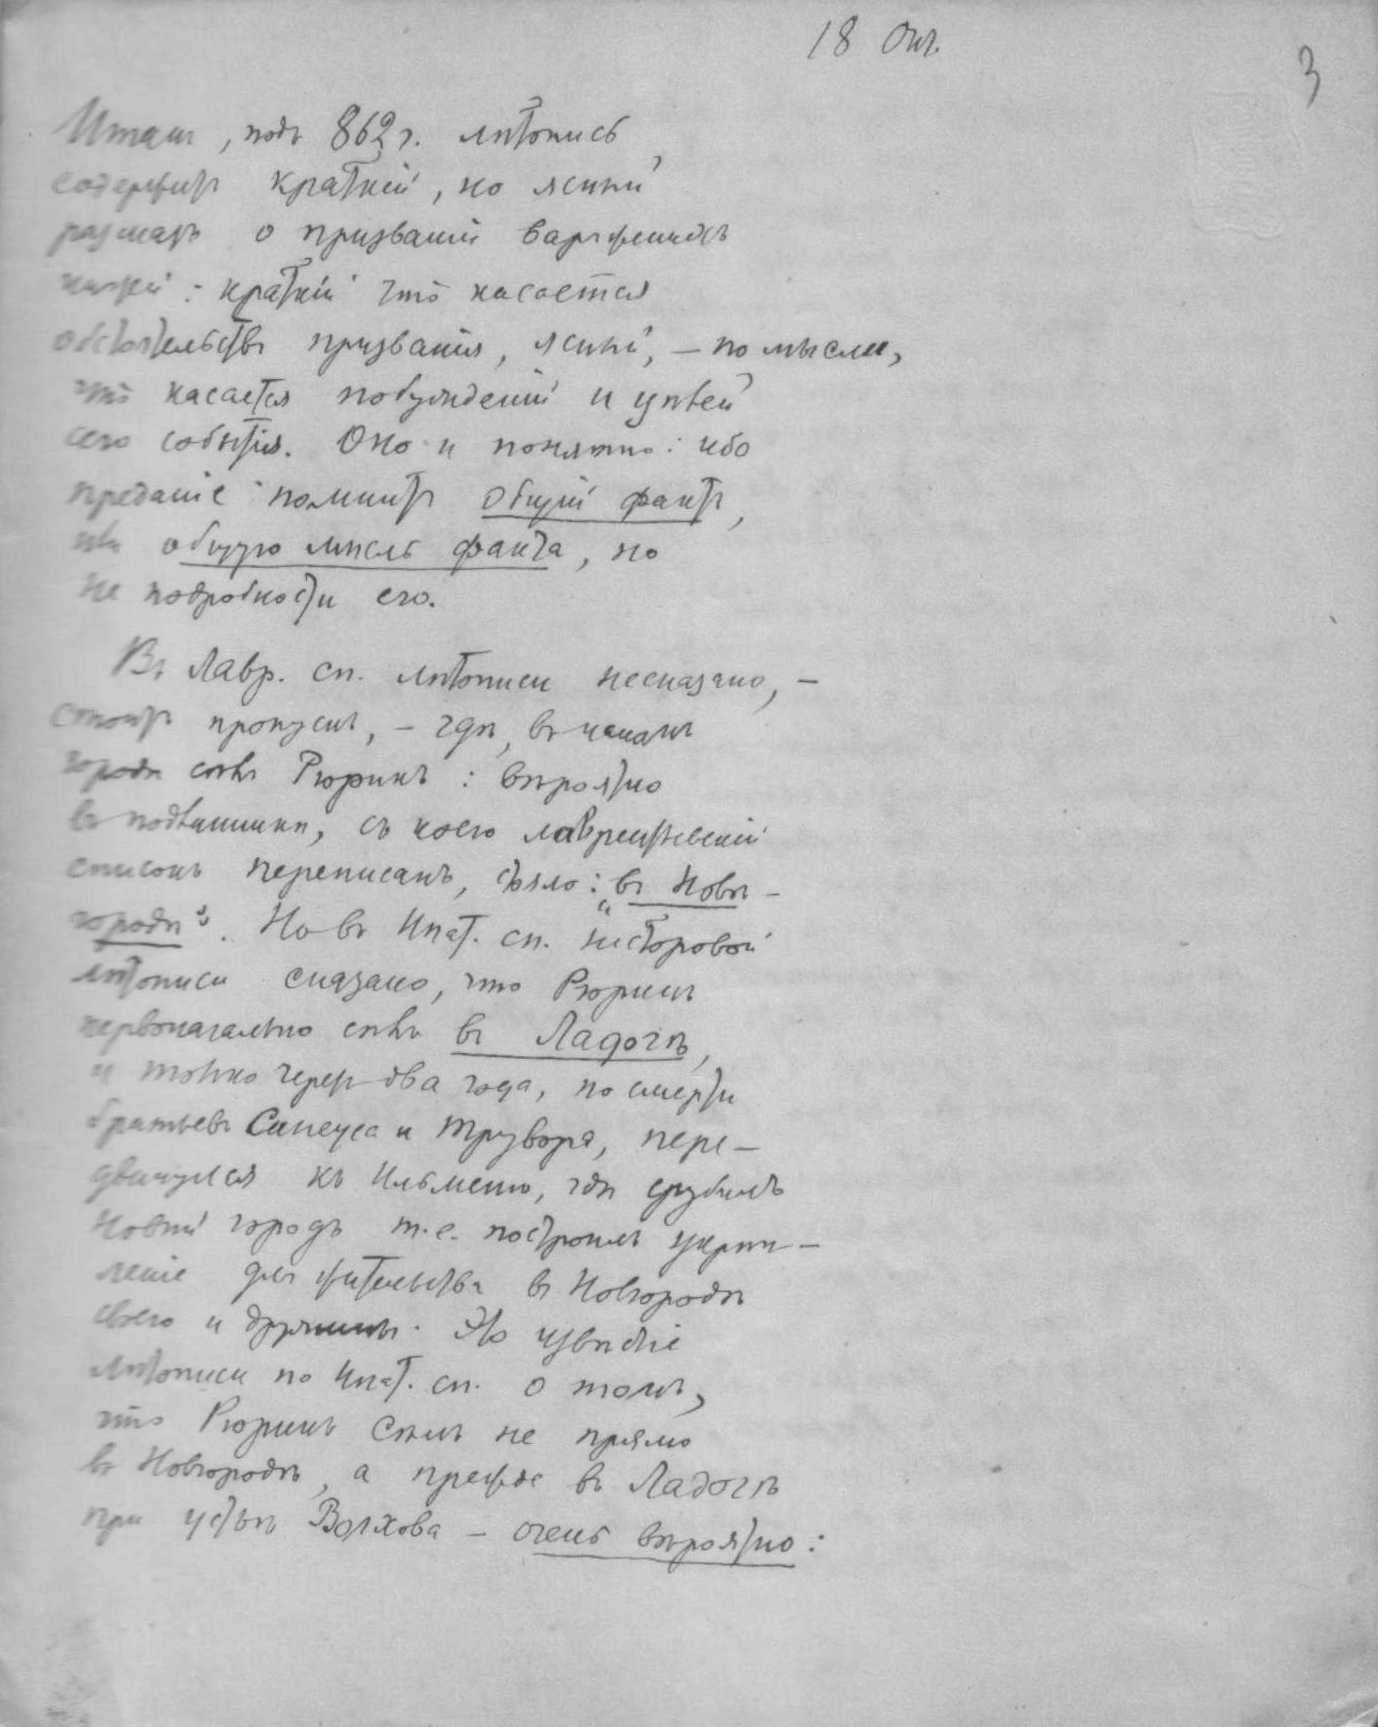 18 Окт.
3
Итакъ, подъ 862 г. лѣтопись
содержитъ краткій, но ясный
разсказъ о призваніи варяжскихъ
князей: краткій что касается
обстоятельствъ призванія, ясный, — по мысли,
что касается побужденій и цѣлей
сего событія. Оно и понятно: ибо
преданіе помнитъ общій фактъ,
общую мысль факта, но
не подробности его.
Въ Лавр. сп. лѣтописи несказано, —
стоитъ пропускъ, — гдѣ, въ какомъ
городѣ сѣлъ Рюрикъ: вѣроятно
въ подлинникѣ, съ коего лаврентьевскій
списокъ переписанъ, стояло: „въ Новѣ-
городѣ“. Но въ Ипат. сп. несторовой
лѣтописи сказано, что Рюрикъ
первоначально сѣлъ въ Ладогѣ,
и только черезъ два года, по смерти
братьевъ Синеуса и Трувора, пере-
двинулся къ Ильменю, гдѣ срубилъ
новый городъ т.е. построилъ укрѣп-
леніе для жительства въ Новгородѣ
своего и дружины. Это извѣстіе
лѣтописи по Ипат. сп. о томъ,
что Рюрикъ сѣлъ не прямо
въ Новгородѣ, а прежде въ Ладогѣ
при устьѣ Волхова — очень вѣроятно: